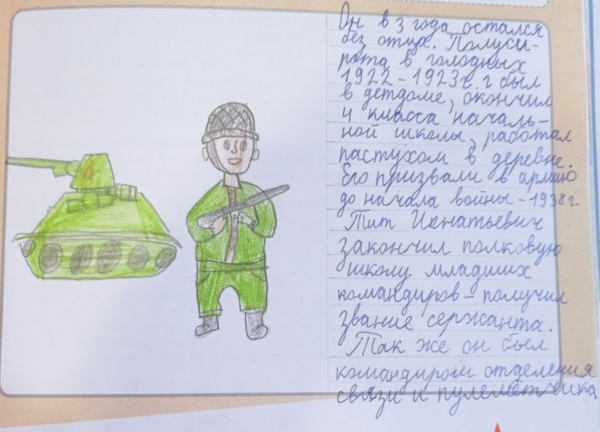 Он в 3 года остался
без отца. Полуси-
рота в голодных
1922-1923г.г был
в детдоме, окончил
4 класса началь-
ной школы, работал
пастухом в деревне.
Его призвали в армию
до начала войны - 1938 г.
Тит Игнатьевич
закончил полковую
школу младших
командиров - получил
звание сержанта.
Так же он был
командиром отделения
связи и пулемётчика